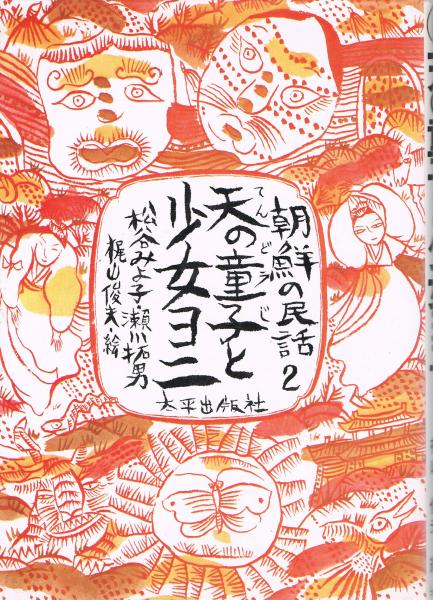 朝鮮の民話2
てんどうじ
天の童子と
少女ヨニ
松谷みよ子 瀬川拓男
梶山俊夫 絵
太平出版社